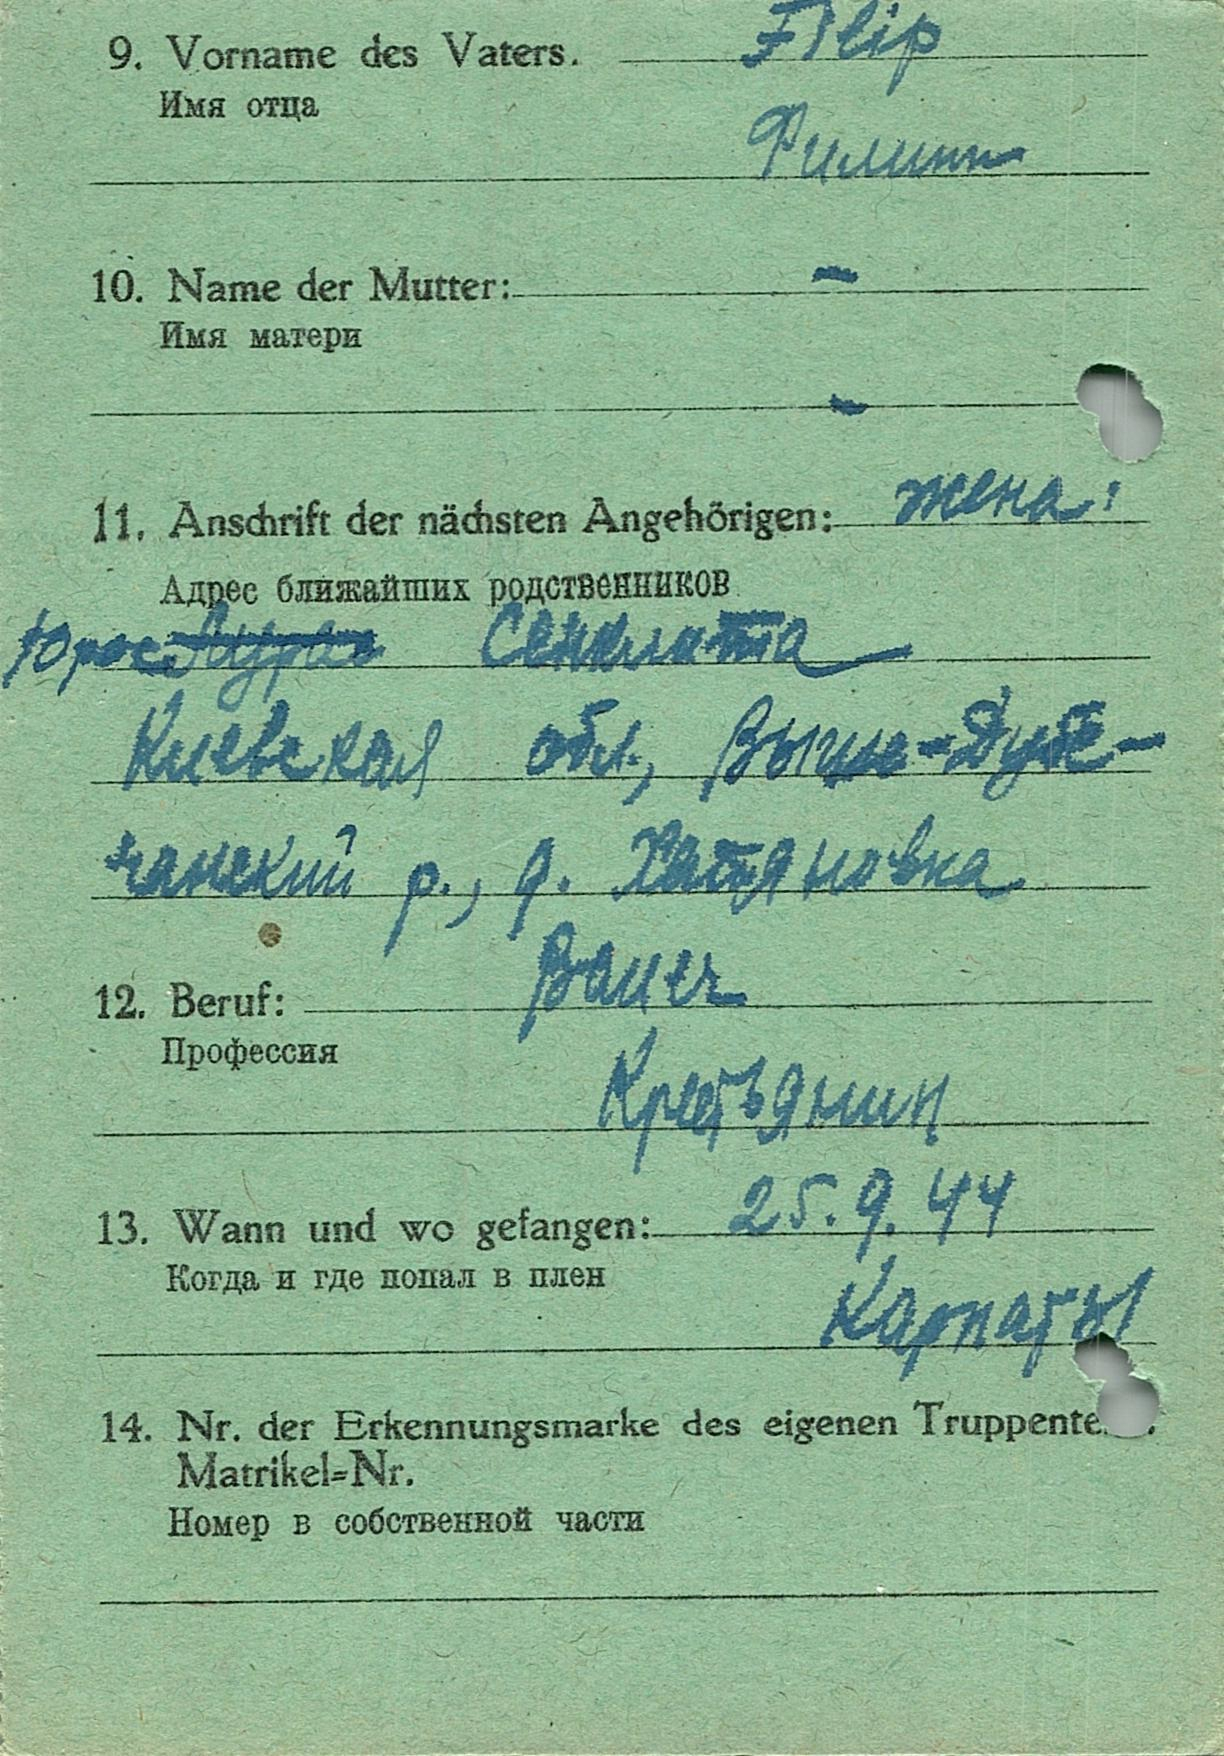 9. Vorname des Vaters. Filip
Имя отца
Филипп
10. Name der Mutter: -
Имя матери
-
11. Anschrift der nächsten Angehörigen: жена:
Адрес ближайших родственников
Сенклита
Киевская обл., Выше-Дубе-
чанский р., д. Хатяновка
12. Beruf: Bauer
Профессия
Крестьянин
13. Wann und wo gefangen: 25.9.44
Когда и где попал в плен
Карпаты
14. Nr. der Erkennungsmarke des eigenen
Matrikel=Nr.
Номер в собственной части